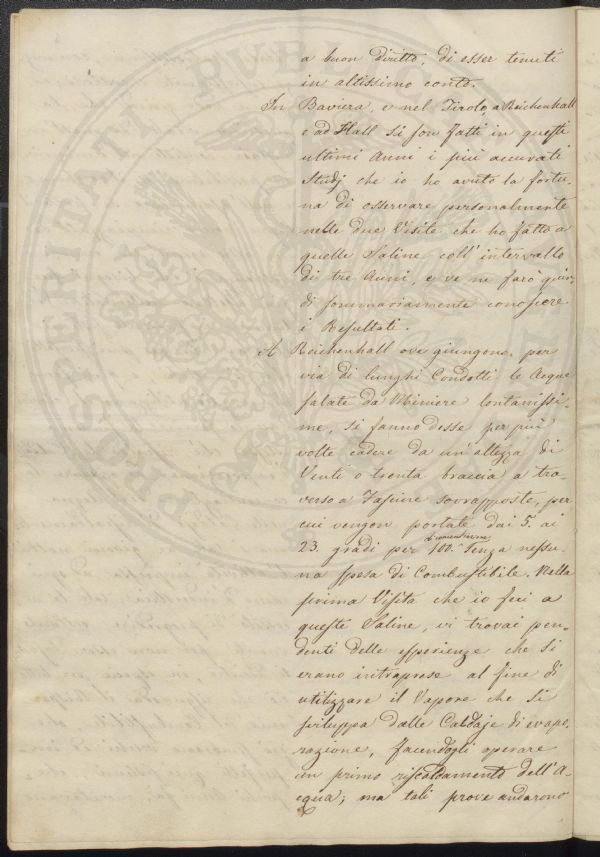 a buon diritto, di esser tenuti
in altissimo conto.
In Baviera, e nel Tirolo, a Reichenhall
e ad Hall si son fatti in questi
ultimi Anni i più accurati
Studj che io ho avuto la fortu-
na di osservare personalmente
nelle due Visite che ho fatto a
quelle Saline coll' intervallo
di tre Anni, e ve ne farò quin-
di sommariamente conoscere
i Resultati.
A Reichenhall ove giungono, per
via di lunghi Condotti le Acque
salate da Miniere lontanissi-
me, si fanno desse per più
volte cadere da un'altezza di
Venti o trenta braccia a tra-
verso a Fascine sovrapposte, per
cui vengon portate dai 5. ai
23. gradi per 100. senza nessu-
na spesa di Combustibile. Nella
prima Visita che io feci a
queste Saline, vi trovai pen-
denti delle esperienze che si
erano intraprese al fine di
utilizzare il Vapore che si
sviluppa dalle Caldaje di evapo-
razione, facendogli operare
un primo riscaldamento dell'A-
cqua; ma tali prove andarono